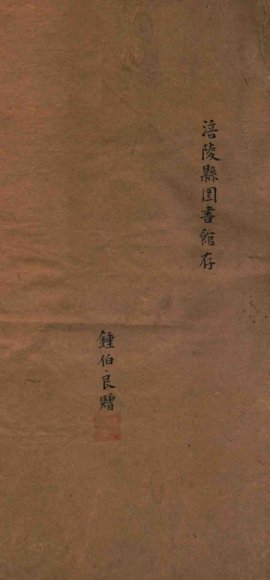 涪陵縣圕書館存
鍾伯良贈